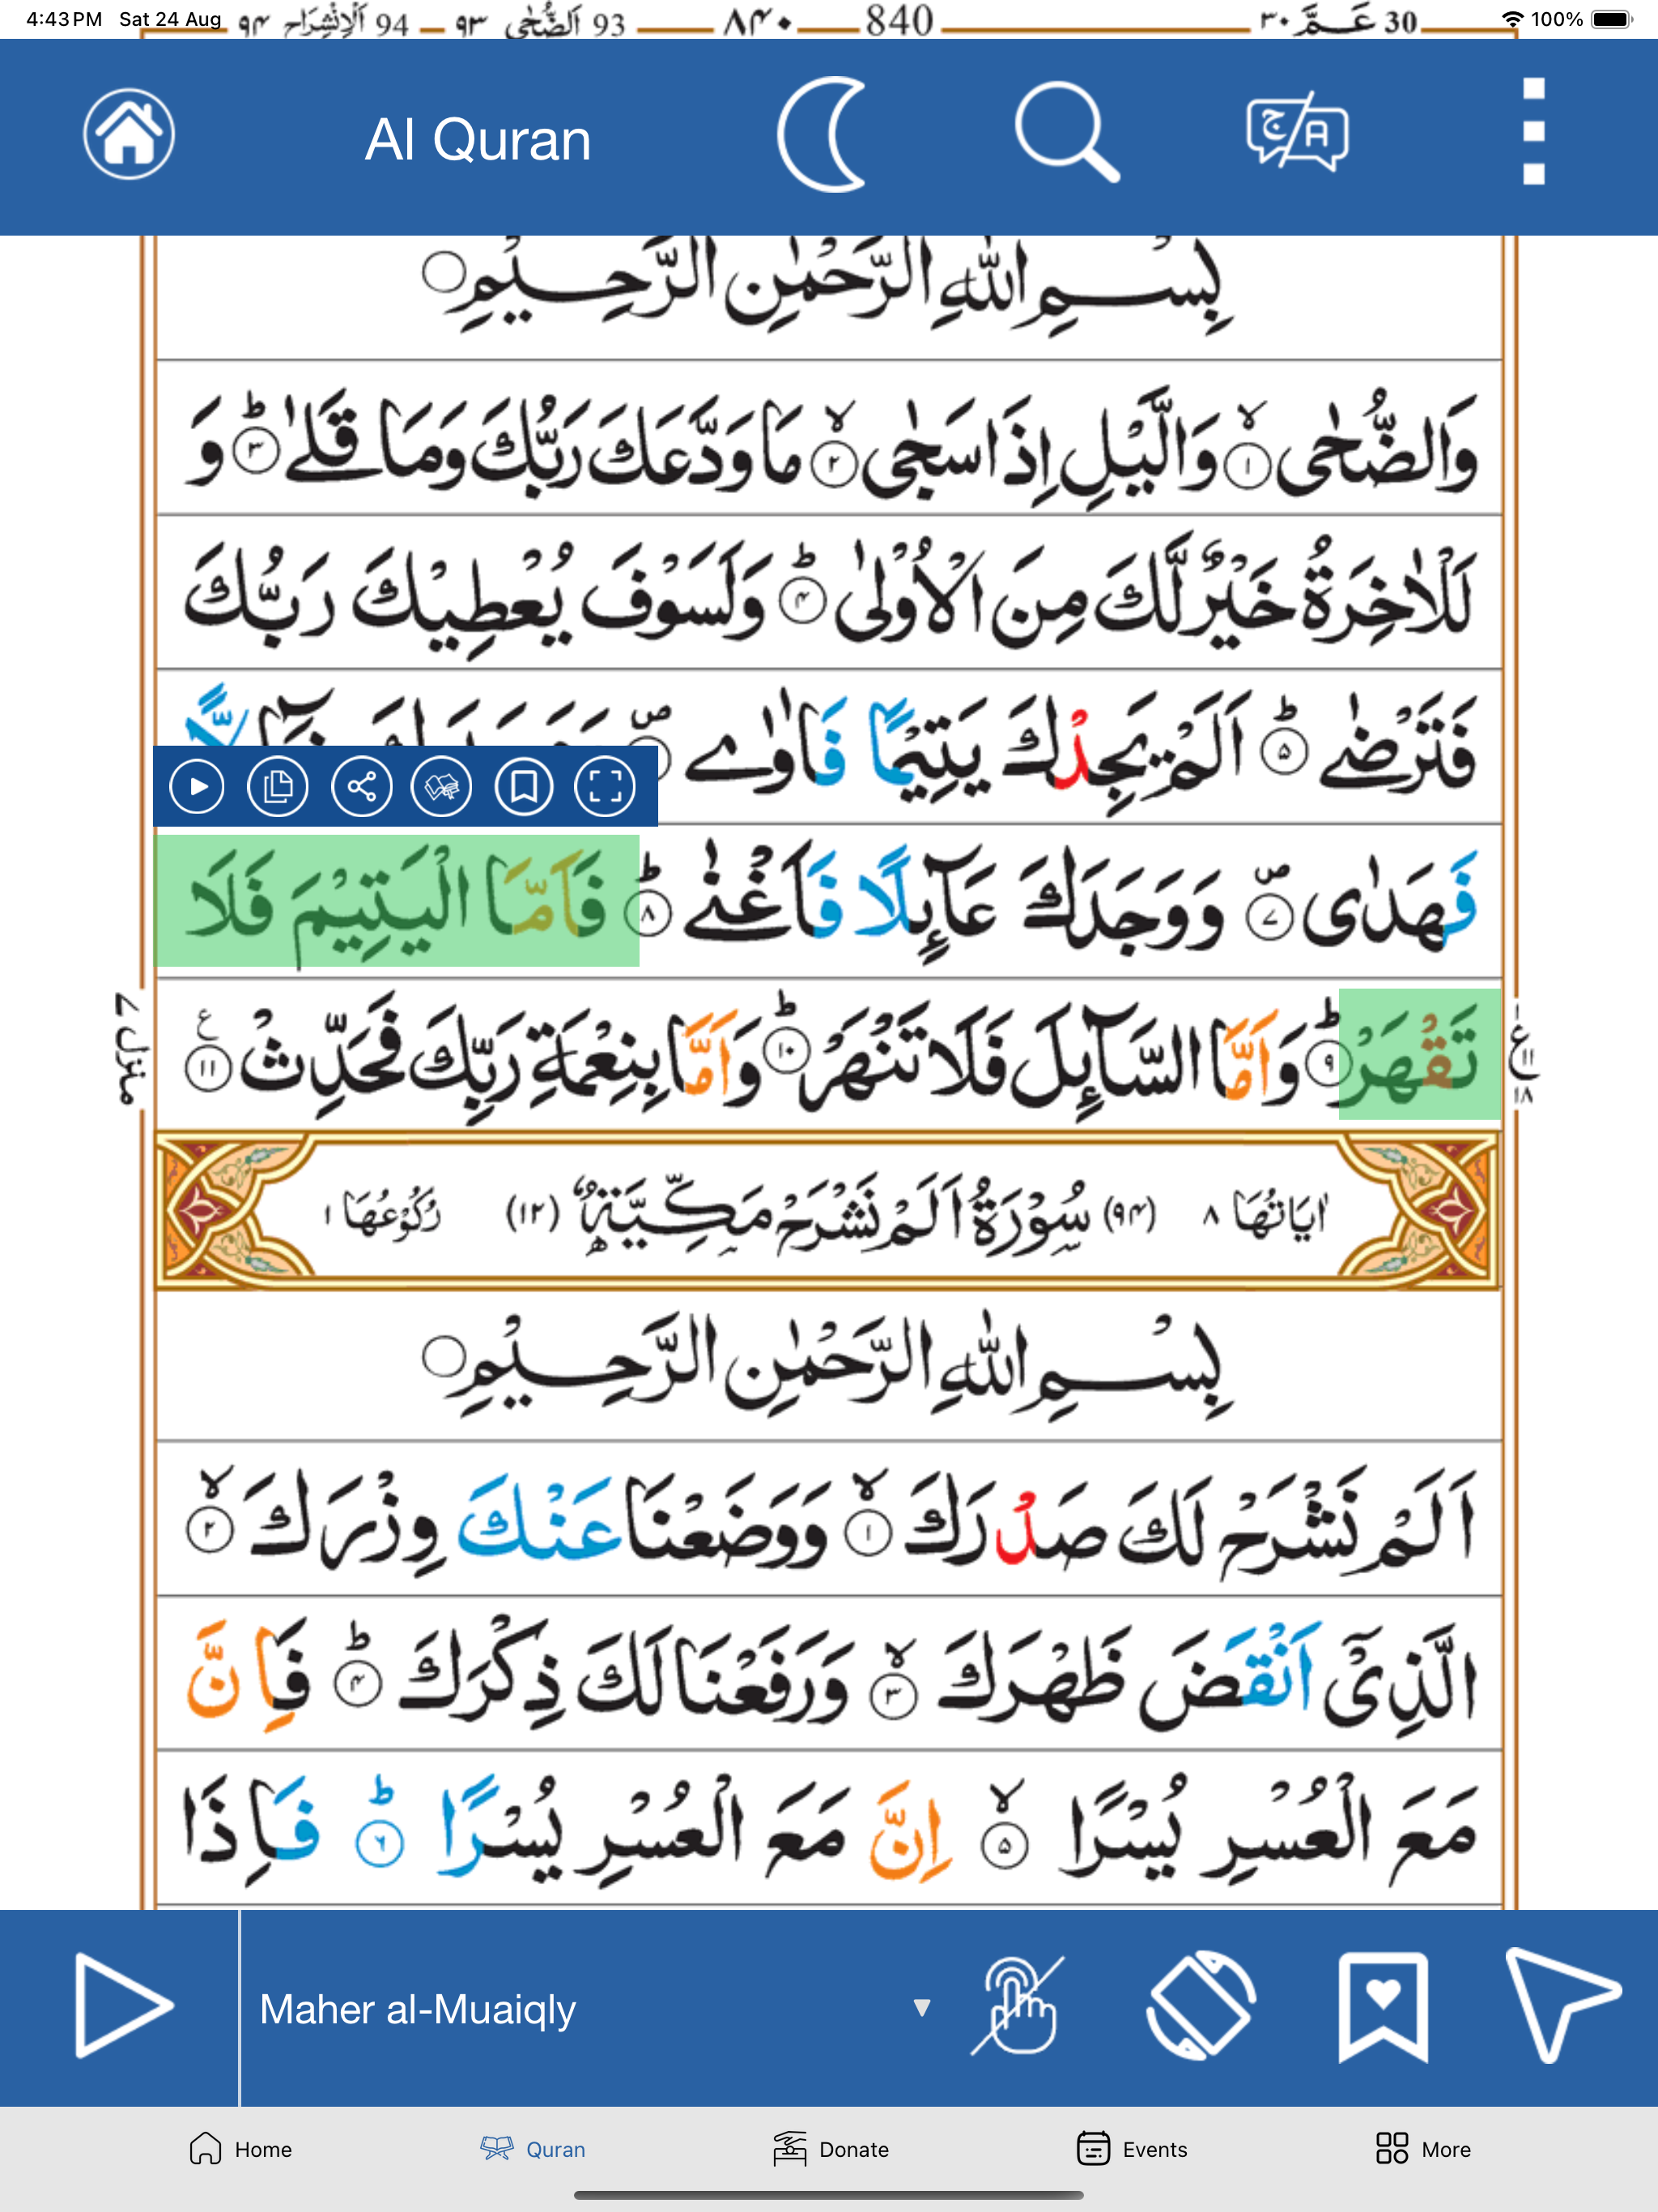 4:43 PM Sat 24 Aug 100%
94 اَلْاِنْشِرَاح ۹۴ — 93 اَلضُّحٰى ۹۳ — ۸۴۰ — 840 — 30 عَـمَّ ۳۰
Al Quran
بِسْمِ اللّٰهِ الرَّحْمٰنِ الرَّحِيْمِ
وَالضُّحٰى ۙ‏﴿۱﴾ وَالَّيْلِ اِذَا سَجٰى ۙ‏﴿۲﴾ مَا وَدَّعَكَ رَبُّكَ وَمَا قَلٰى ؕ‏﴿۳﴾ وَ
لَلْاٰخِرَةُ خَيْرٌ لَّكَ مِنَ الْاُوْلٰى ؕ‏﴿۴﴾ وَلَسَوْفَ يُعْطِيْكَ رَبُّكَ
فَتَرْضٰى ؕ‏﴿۵﴾ اَلَمْ يَجِدْكَ يَتِيْمًا فَاٰوٰى ۖ
فَهَدٰى ۖ‏﴿۷﴾ وَوَجَدَكَ عَآئِلًا فَاَغْنٰى ؕ‏﴿۸﴾ فَاَمَّا الْيَتِيْمَ فَلَا
تَقْهَرْ ؕ‏﴿۹﴾ وَاَمَّا السَّآئِلَ فَلَا تَنْهَرْ ؕ‏﴿۱۰﴾ وَاَمَّا بِنِعْمَةِ رَبِّكَ فَحَدِّثْ ﴿۱۱﴾ ع
ع ۱۱ ۱۸
منزل ۷
اٰيَاتُهَا ۸ (۹۴) سُوْرَةُ اَلَمْ نَشْرَحْ مَكِّيَّةٌ (۱۲) رُكُوْعُهَا ۱
بِسْمِ اللّٰهِ الرَّحْمٰنِ الرَّحِيْمِ
اَلَمْ نَشْرَحْ لَكَ صَدْرَكَ ۙ‏﴿۱﴾ وَوَضَعْنَا عَنْكَ وِزْرَكَ ۙ‏﴿۲﴾
الَّذِىْٓ اَنْقَضَ ظَهْرَكَ ۙ‏﴿۳﴾ وَرَفَعْنَا لَكَ ذِكْرَكَ ؕ‏﴿۴﴾ فَاِنَّ
مَعَ الْعُسْرِ يُسْرًا ۙ‏﴿۵﴾ اِنَّ مَعَ الْعُسْرِ يُسْرًا ؕ‏﴿۶﴾ فَاِذَا
Maher al-Muaiqly
Home Quran Donate Events More